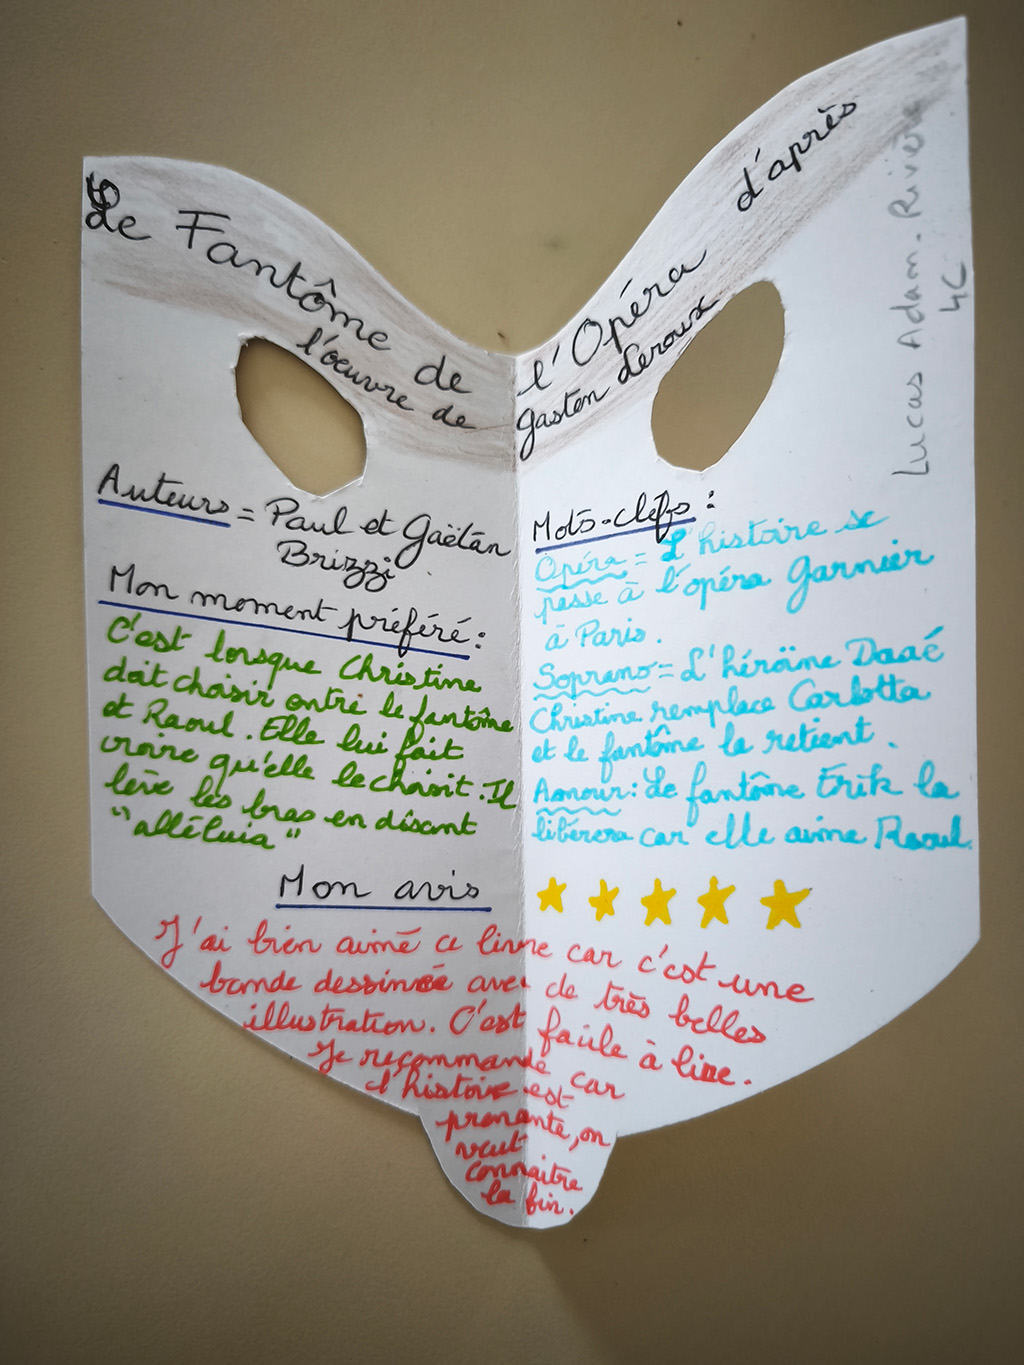 Le Fantôme de l'Opéra d'après
l'oeuvre de Gaston Leroux
Lucas Adam. Rivière
4C
Auteurs = Paul et Gaëtan
Brizzi.
Mon moment préféré :
C'est lorsque Christine
doit choisir entre le fantôme
et Raoul. Elle lui fait
croire qu'elle le choisit. Il
lève les bras en disant
"alléluia"
Mots-clefs :
Opéra = L'histoire se
passe à l'opéra Garnier
à Paris.
Soprano = L'héroïne Daaé
Christine remplace Carlotta
et le fantôme la retient.
Amour : Le fantôme Erik la
libérera car elle aime Raoul.
Mon avis
J'ai bien aimé ce livre car c'est une
bande dessinée avec de très belles
illustration. C'est facile à lire.
Je recommande car
l'histoire est
prenante, on
veut
connaitre
la fin.